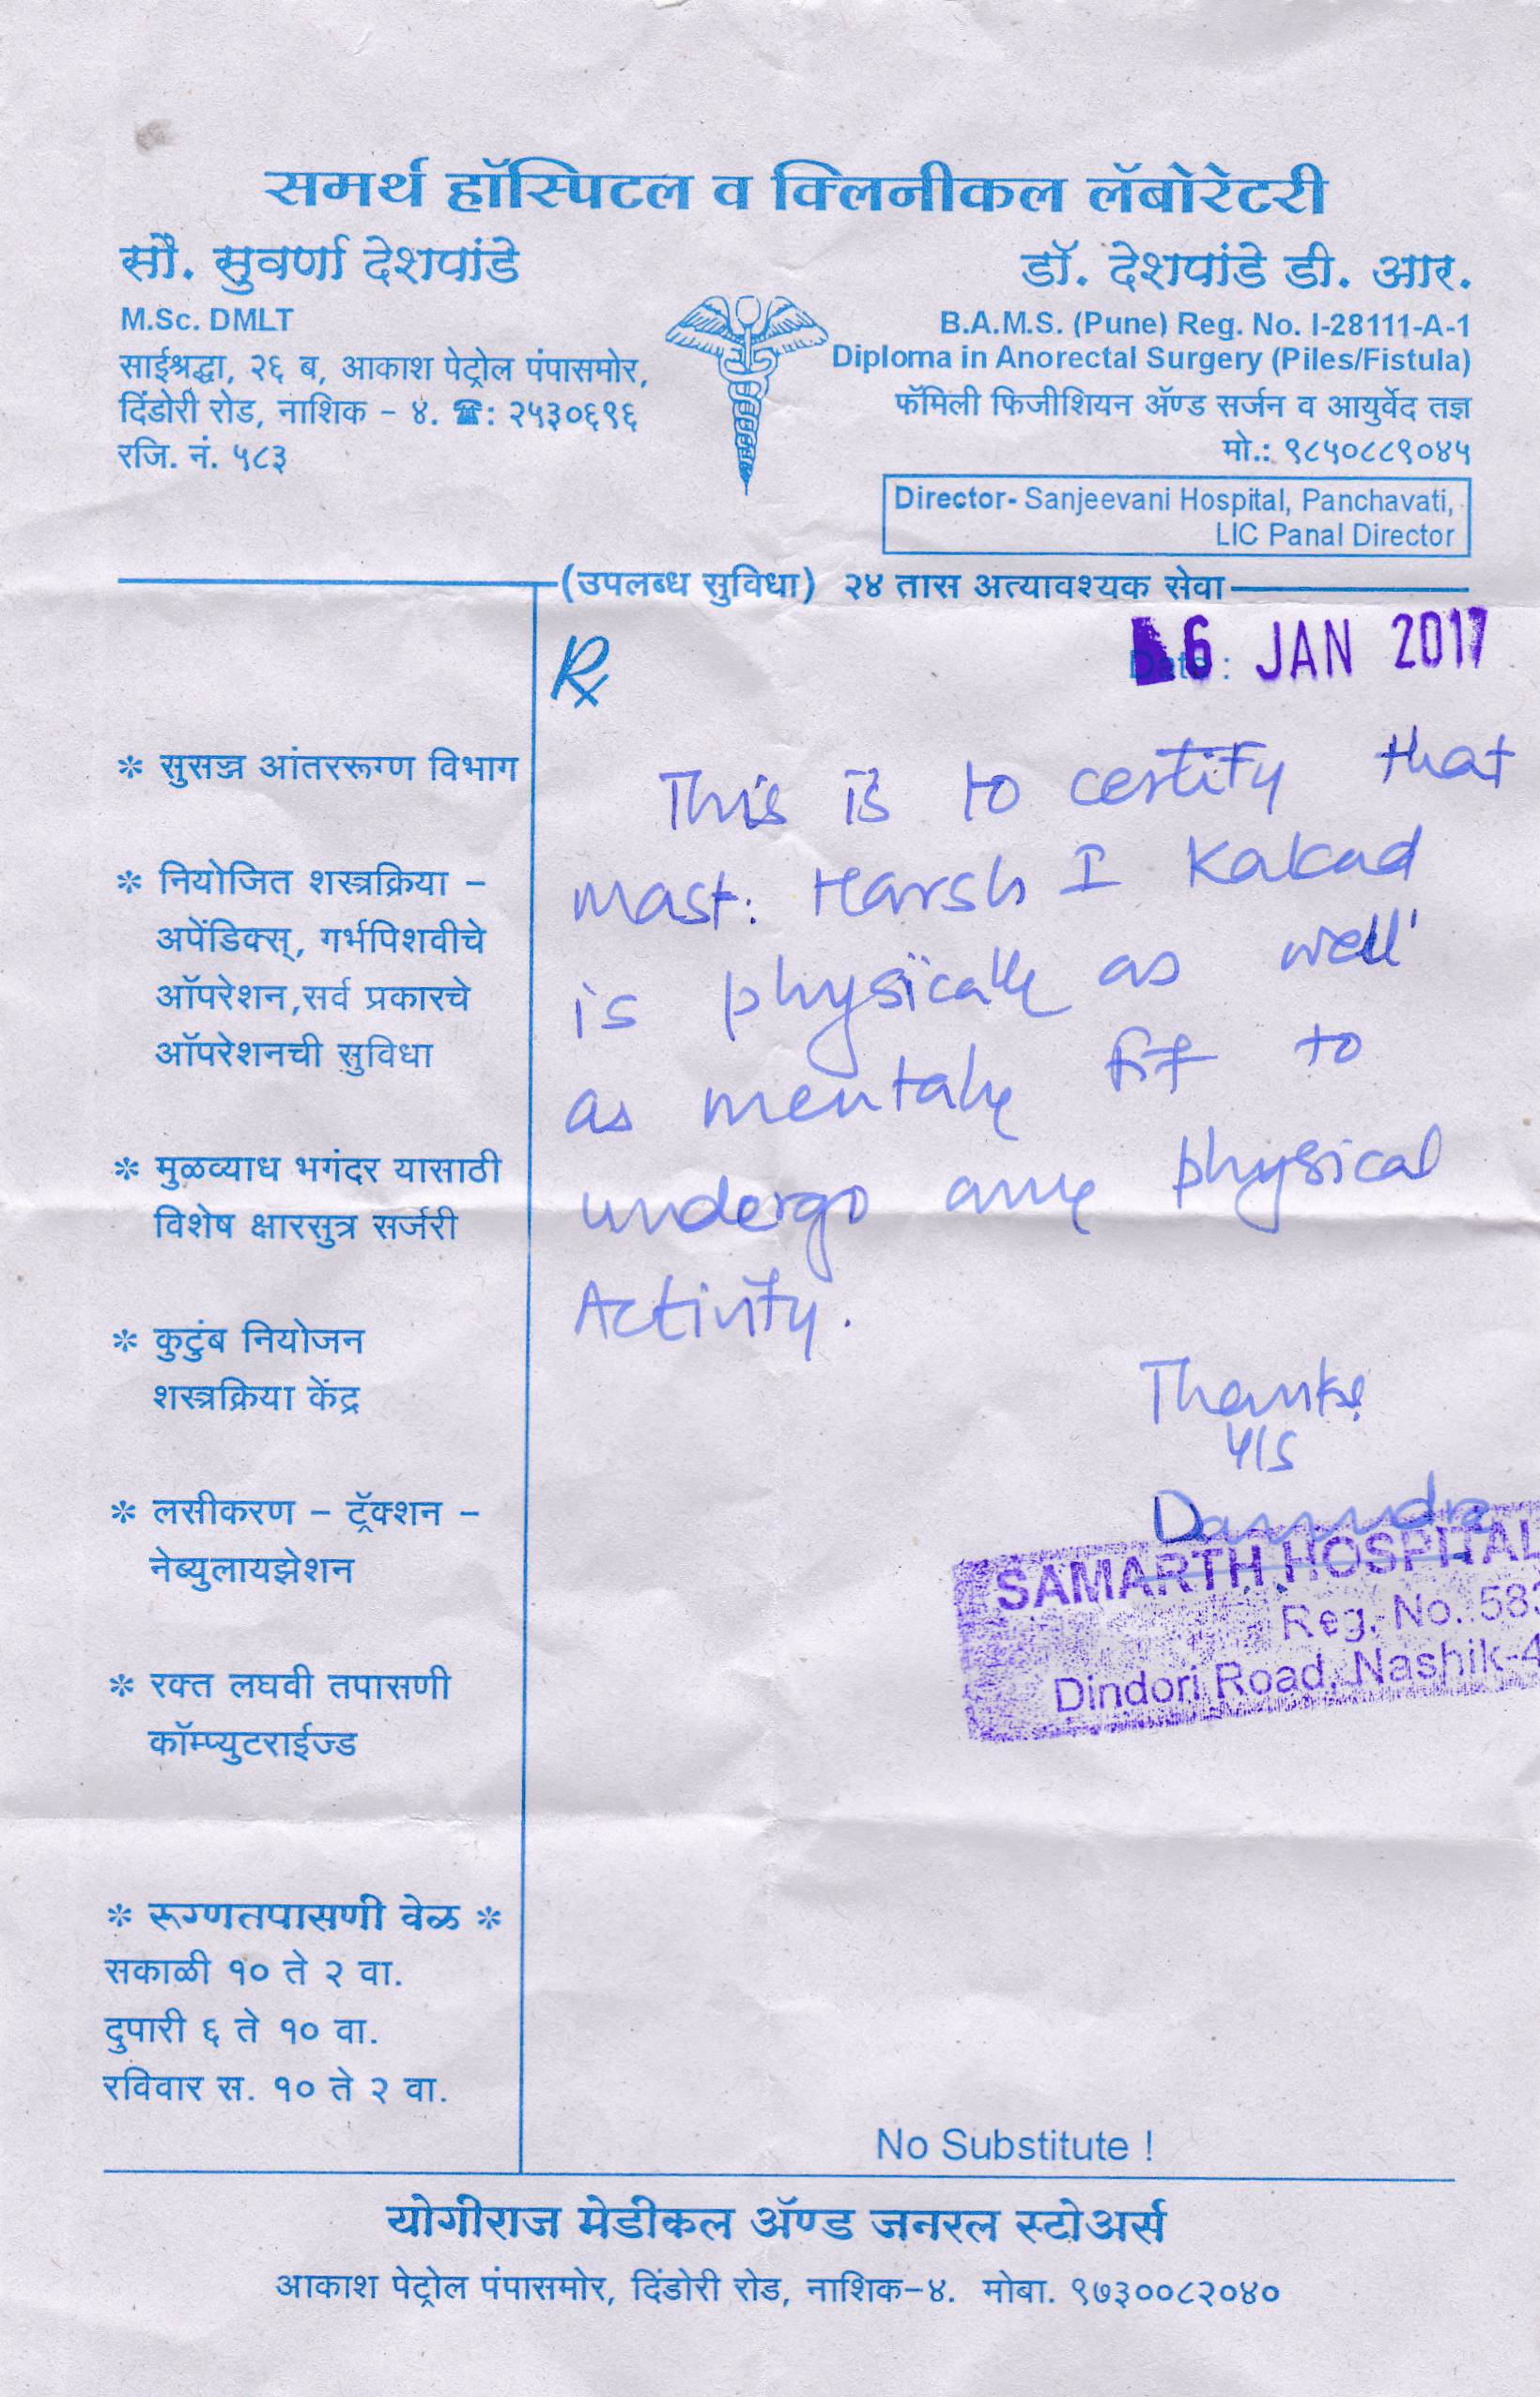 समर्थ हॉस्पिटल व क्लिनीकल लॅबोरेटरी
सौ. सुवर्णा देशपांडे
M.Sc. DMLT
साईश्रद्धा, २६ ब, आकाश पेट्रोल पंपासमोर,
दिंडोरी रोड, नाशिक - ४. ☎: २५३०६९६
रजि. नं. ५८३
डॉ. देशपांडे डी. आर.
B.A.M.S. (Pune) Reg. No. I-28111-A-1
Diploma in Anorectal Surgery (Piles/Fistula)
फॅमिली फिजीशियन ॲण्ड सर्जन व आयुर्वेद तज्ञ
मो.: ९८५०८८९०४५
Director- Sanjeevani Hospital, Panchavati,
LIC Panal Director
(उपलब्ध सुविधा) २४ तास अत्यावश्यक सेवा
Date :
6 JAN 2017
* सुसज्ज आंतररूग्ण विभाग
* नियोजित शस्त्रक्रिया -
अपेंडिक्स्, गर्भपिशवीचे
ऑपरेशन,सर्व प्रकारचे
ऑपरेशनची सुविधा
* मुळव्याध भगंदर यासाठी
विशेष क्षारसुत्र सर्जरी
* कुटुंब नियोजन
शस्त्रक्रिया केंद्र
* लसीकरण - ट्रॅक्शन -
नेब्युलायझेशन
* रक्त लघवी तपासणी
कॉम्प्युटराईज्ड
* रूग्णतपासणी वेळ *
सकाळी १० ते २ वा.
दुपारी ६ ते १० वा.
रविवार स. १० ते २ वा.
Rx
This is to certify that
mast. Harsh I Kakad
is physically as well
as mentaly fit to
undergo any physical
Activity.
Thanks
Y/S
SAMARTH HOSPITAL
Reg. No. 583
Dindori Road, Nashik-4
No Substitute !
योगीराज मेडीकल ॲण्ड जनरल स्टोअर्स
आकाश पेट्रोल पंपासमोर, दिंडोरी रोड, नाशिक-४. मोबा. ९७३००८२०४०